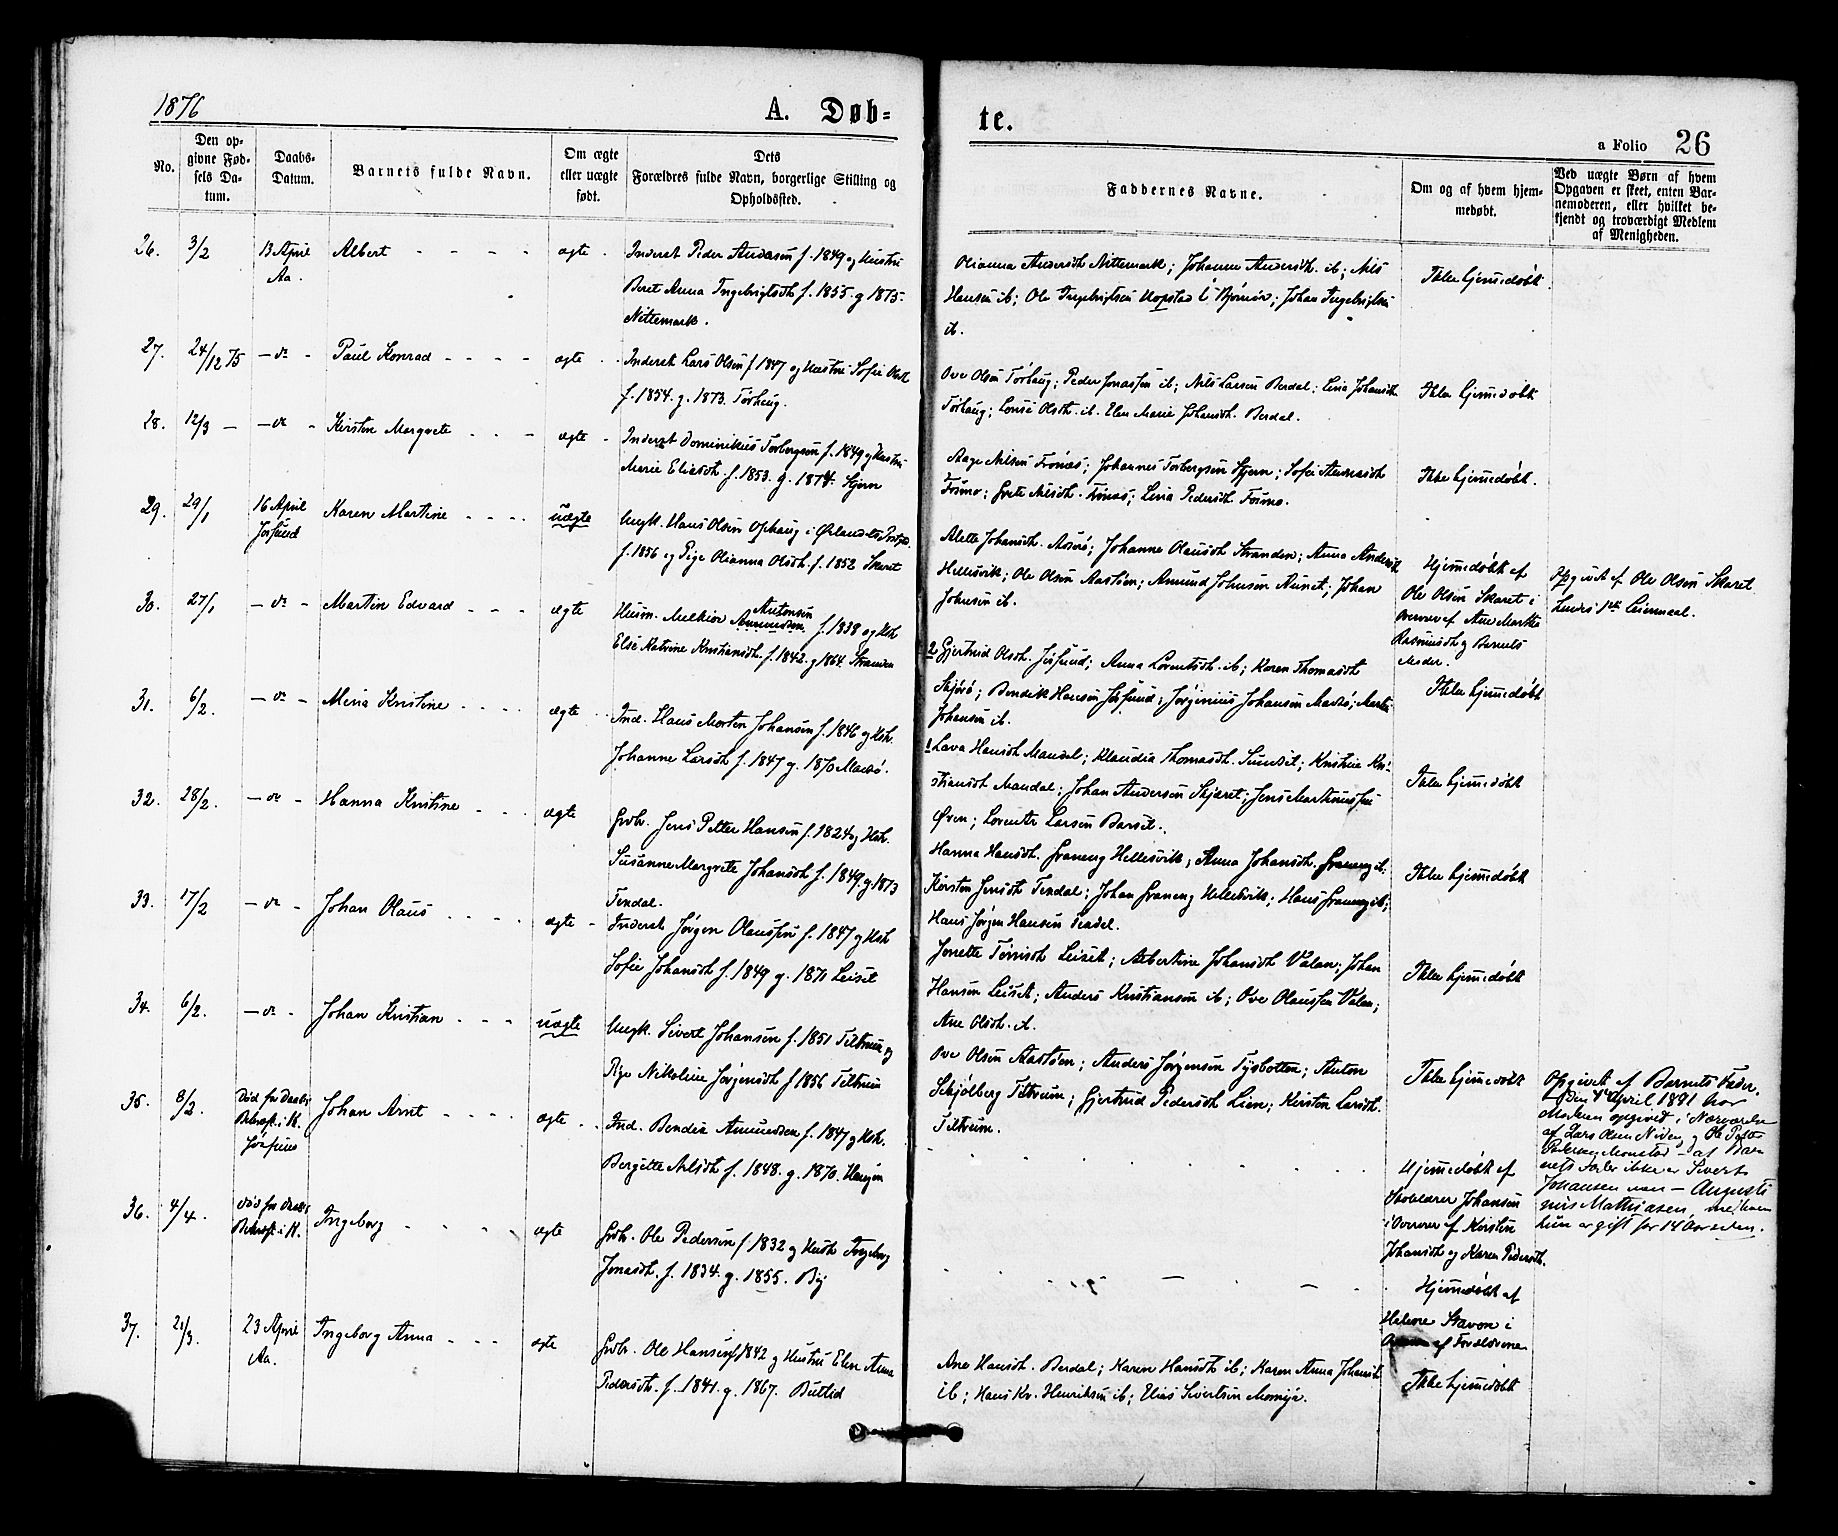 1876
A. Døb-
te.
a Folio 26
No.
Den op-
givne Fød-
sels Da-
tum.
Daabs-
Datum.
Barnets fulde Navn.
Om ægte
eller uægte
født.
Dets
Forældres fulde Navn, borgerlige Stilling og
Opholdssted.
Faddernes Navne.
Om og af hvem hjem-
medøbt.
Ved uægte Børn af hvem
Opgaven er skeet, enten Bar-
nemoderen, eller hvilket be-
kjendt og troværdigt Medlem
af Menigheden.
26. 3/2 13 April Albert ægte
Aa.
Inderst Peder Andersen f. 1849 og Hustru
Beret Anna Ingebrigtsdt f. 1855 g 1875.
Nittemark.
Olianna Andersdt Nittemark; Johanna Andersdt. ib; Nils
Hansen ib; Ole Ingebrigtsen Hopstad i Bjørnør; Johan Ingebrigtsen
ib.
Ikke hjemmedøbt.
27. 24/12 75 — do — Paul Konrad ægte
Inderst Lars Olsen f 1847 og Hustru Sofie Olsdt
f. 1854. g. 1873. Tørhaug.
Ove Olsen Tørhaug; Peder Jonassen ib; Nils Larsen Berdal; Lina Johansdt
Tørhaug; Lovise Olsdt. ib. Elen Marie Johansdt. Berdal.
Ikke hjemmedøbt
28. 12/3 — — do — Kirsten Margrete ægte
Inderst Dominikus Torbergsen f. 1849 og Hustru
Marie Eliasdt. f. 1853. g. 1874. Stjern
Aage Nilsen Frønes; Johannes Torbergsen Stjern; Sofie Andreasdt
Formo; Grete Nilsdt. Frønes; Lina Pedersdt. Formo.
Ikke hjemmedøbt.
29. 29/1 16 April Karen Martine uægte
Jøssund
Ungk. Hans Olsen Ophaug i Ørlandets Prstgj.
f. 1856 og Pige Olianna Olsdt. f. 1852 Skaret
Alette Johansdt. Asserø; Johanne Olausdt Stranden; Anna Andersdt
Hellesvik; Ole Olsen Aastøen; Amund Johnsen Aunet; Johan
Johnsen ib.
Hjemmedøbt af
Ole Olsen Skaret i
Overvær af Ane Marthe
Rasmusdt og Barnets
Moder.
Opgivet af Ole Olsen Skaret
Hendes 1ste Leiermaal.
30. 27/1 — do — Martin Edvard ægte
Husm. Melkior Antonsen f. 1838 og Hst
Else Katrine Kristiansdt. f. 1842. g 1864. Stranden
2 Gjertrud Olsdt. Jøssund; Anna Lorentsdt. ib; Karen Thomasdt
Skjørø; Bendik Hansen Jøssund; Jørginius Johansen Madsø; Martin
Johansen ib.
Ikke hjemmedøbt
31. 6/2. — do — Mina Kristine ægte
Ind. Hans Morten Johansen f. 1846 og Hst.
Johanne Larsdt f. 1847 g. 1870 Madsø.
1 Lava Hansdt Mandal; Klaudia Thomasdt. Sundset; Kristine Kri-
stiansdt Mandal; Johan Andersen Skjæret; Jens Martinussen
Øien; Lorents Larsen Barset.
Ikke hjemmedøbt
32. 28/2. — do — Hanna Kristine ægte
Grdbr. Jens Petter Hansen f. 1824 og Hst.
Susanne Margrete Johansdt f. 1849 g 1873
Teksdal.
Hanna Hansdt. Graneng Hellesvik; Anna Johansdt. Graneng ib.
Kirsten Jensdt Teksdal; Johan Graneng Hellesvik; Hans Graneng ib;
Hans Jørgen Hansen Teksdal.
Ikke hjemmedøbt
33. 17/2 — do — Johan Olaus ægte
Inderst Jørgen Olaussen f. 1847 og Hst
Sofie Johansdt f. 1849 g. 1871 Leiset
Jonette Tørrisdt Leiset; Albertine Johansdt Valan; Johan
Hansen Leiset; Anders Kristiansen ib; Ove Olaussen Valan;
Ane Olsdt. ib.
Ikke hjemmedøbt
34. 6/2. — do — Johan Kristian uægte
Ungk. Sivert Johansen f. 1851 Teltrum og
Pige Nikoline Jørgensdt f 1856 Teltrum
Ove Olsen Aastøen; Anders Jørgensen Sysbotten; Anton
Schjølberg Teltrum; Gjertrud Pedersdt Lien; Kirsten Larsdt.
Teltrum.
Ikke hjemmedøbt
Opgivet af Barnets Fader.
Den 4 April 1891 har
Moderen opgivet i Nærværelse
af Lars Olsen Nideng og Ole Petter
Pedersen Monstad — at Bar-
nets Fader ikke er Sivert
Johansen men — Augusti-
nus Mathiasen, med hvem
hun er gift for 14 Aar siden.
35. 8/2. Død før Daabs Johan Arnt ægte
Bekræft. i K.
Jøssund
Ind. Bendix Amundsen f. 1847 og Hst.
Bergitte Nilsdt f. 1848. g. 1870. Haugen
Hjemmedøbt af
Skolelærer Johansen
i Overvær af Kirsten
Johansdt og Karen Pedersdt.
36. 4/4. Død før Daabs Ingeborg ægte
Bekræft i K.
Grdbr. Ole Pedersen f 1832 og Hustru Ingeborg
Jonasdt. f. 1834. g. 1855. By
Hjemmedøbt af
Helene Stavon i
Overvær af Forældrene
37. 21/3. 23 April Ingeborg Anna ægte
Aa.
Grdbr. Ole Hansen f 1842 og Hustru Elen Anna
Pedersdt. f. 1841. g. 1867. Butlid
Ane Hansdt. Berdal; Karen Hansdt ib; Karen Anna Johansdt
ib; Hans Kr. Henriksen ib; Elias Sivertsen Momyr.
Ikke hjemmedøbt